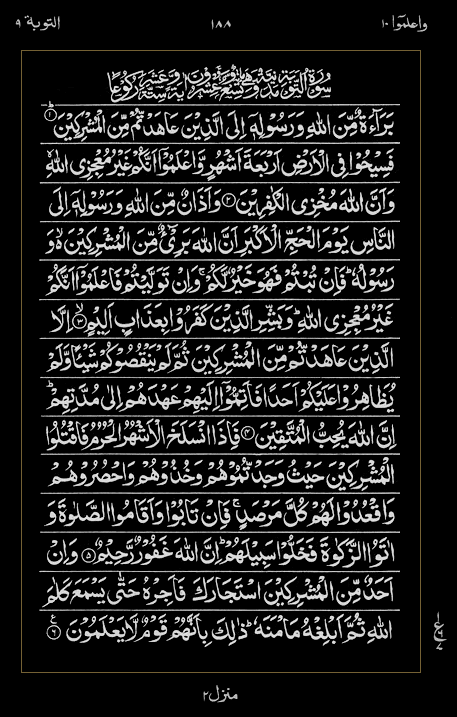 واعلموآ ١٠
١٨٨
التوبة ٩
سُوْرَةُ التَّوْبَةِ مَدَنِيَّةٌ وَّهِيَ مِائَةٌ وَّتِسْعٌ وَّعِشْرُوْنَ اٰيَةً وَّسِتَّةَ عَشَرَ رُكُوْعًا
بَرَآءَةٌ مِّنَ اللّٰهِ وَرَسُوْلِهٖٓ اِلَى الَّذِيْنَ عَاهَدْتُّمْ مِّنَ الْمُشْرِكِيْنَ ؕ﴿۱﴾
فَسِيْحُوْا فِى الْاَرْضِ اَرْبَعَةَ اَشْهُرٍ وَّاعْلَمُوْٓا اَنَّكُمْ غَيْرُ مُعْجِزِى اللّٰهِۙ
وَاَنَّ اللّٰهَ مُخْزِى الْكٰفِرِيْنَ ﴿۲﴾ وَاَذَانٌ مِّنَ اللّٰهِ وَرَسُوْلِهٖٓ اِلَى
النَّاسِ يَوْمَ الْحَجِّ الْاَكْبَرِ اَنَّ اللّٰهَ بَرِىْٓءٌ مِّنَ الْمُشْرِكِيْنَ ۙ۬ وَ
رَسُوْلُهٗ ؕ فَاِنْ تُبْتُمْ فَهُوَ خَيْرٌ لَّكُمْ ۚ وَاِنْ تَوَلَّيْتُمْ فَاعْلَمُوْٓا اَنَّكُمْ
غَيْرُ مُعْجِزِى اللّٰهِ ؕ وَبَشِّرِ الَّذِيْنَ كَفَرُوْا بِعَذَابٍ اَلِيْمٍ ۙ﴿۳﴾ اِلَّا
الَّذِيْنَ عَاهَدْتُّمْ مِّنَ الْمُشْرِكِيْنَ ثُمَّ لَمْ يَنْقُصُوْكُمْ شَيْـًٔا وَّلَمْ
يُظَاهِرُوْا عَلَيْكُمْ اَحَدًا فَاَتِمُّوْٓا اِلَيْهِمْ عَهْدَهُمْ اِلٰى مُدَّتِهِمْ ؕ
اِنَّ اللّٰهَ يُحِبُّ الْمُتَّقِيْنَ ﴿۴﴾ فَاِذَا انْسَلَخَ الْاَشْهُرُ الْحُرُمُ فَاقْتُلُوا
الْمُشْرِكِيْنَ حَيْثُ وَجَدْتُّمُوْهُمْ وَخُذُوْهُمْ وَاحْصُرُوْهُمْ
وَاقْعُدُوْا لَهُمْ كُلَّ مَرْصَدٍ ۚ فَاِنْ تَابُوْا وَاَقَامُوا الصَّلٰوةَ وَ
اٰتَوُا الزَّكٰوةَ فَخَلُّوْا سَبِيْلَهُمْ ؕ اِنَّ اللّٰهَ غَفُوْرٌ رَّحِيْمٌ ﴿۵﴾ وَاِنْ
اَحَدٌ مِّنَ الْمُشْرِكِيْنَ اسْتَجَارَكَ فَاَجِرْهُ حَتّٰى يَسْمَعَ كَلٰمَ
اللّٰهِ ثُمَّ اَبْلِغْهُ مَاْمَنَهٗ ؕ ذٰلِكَ بِاَنَّهُمْ قَوْمٌ لَّا يَعْلَمُوْنَ ﴿۶﴾
ع
منزل ٢